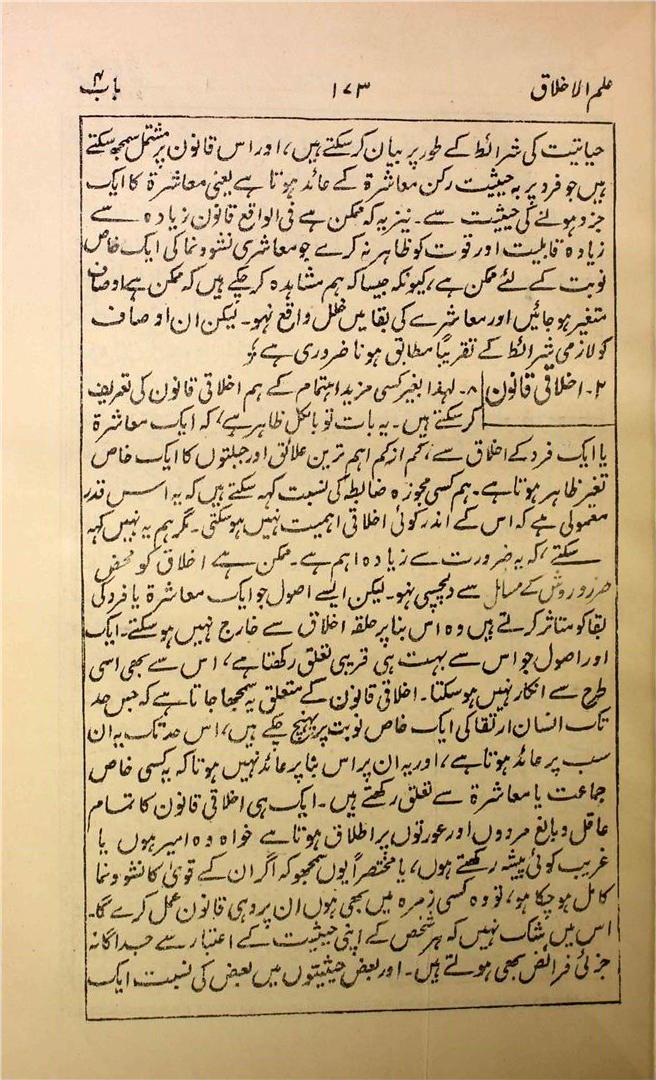 علم الاخلاق ۱۷۳ باب ۴
حیاتیت کی شرائط کے طور پر بیان کر سکتے ہیں، اور اس قانون پر مشتمل سمجھ سکتے
ہیں جو فرد پر بہ حیثیت رکن معاشرۃ کے عائد ہوتا ہے یعنی معاشرۃ کا ایک
جزو ہونے کی حیثیت سے۔ نیز یہ کہ ممکن ہے فی الواقع قانون زیادہ سے
زیادہ قابلیت اور قوت کو ظاہر نہ کرے جو معاشری نشوونما کی ایک خاص
نوبت کے لئے ممکن ہے، کیونکہ جیسا کہ ہم مشاہدہ کر چکے ہیں کہ ممکن ہے اوصاف
متغیر ہو جائیں اور معاشرے کی بقا میں خلل واقع نہو۔ لیکن ان اوصاف
کو لازمی شرائط کے تقریباً مطابق ہونا ضروری ہے ؛
۲۔ اخلاقی قانون ۸۔ لہذا بغیر کسی مزید اہتمام کے ہم اخلاقی قانون کی تعریف
کر سکتے ہیں۔ یہ بات تو بالکل ظاہر ہے، کہ ایک معاشرۃ
یا ایک فرد کے اخلاق سے، کم از کم اہم ترین علائق اور جبلتوں کا ایک خاص
تغیر ظاہر ہوتا ہے۔ ہم کسی مجوزہ ضابطہ کی نسبت کہہ سکتے ہیں کہ یہ اس قدر
معمولی ہے کہ اس کے اندر کوئی اخلاقی اہمیت نہیں ہو سکتی۔ مگر ہم یہ نہیں کہہ
سکتے، کہ یہ ضرورت سے زیادہ اہم ہے۔ ممکن ہے اخلاق کو محض
طرز و روش کے مسائل سے دلچسپی نہو۔ لیکن ایسے اصول جو ایک معاشرۃ یا فرد کی
بقا کو متاثر کرتے ہیں وہ اس بنا پر حلقہ اخلاق سے خارج نہیں ہو سکتے۔ ایک
اور اصول جو اس سے بہت ہی قریبی تعلق رکھتا ہے، اس سے بھی اسی
طرح سے انکار نہیں ہو سکتا۔ اخلاقی قانون کے متعلق یہ سمجھا جاتا ہے کہ جس حد
تک انسان ارتقا کی ایک خاص نوبت پر پہنچ چکے ہیں، اس حد تک یہ ان
سب پر عائد ہوتا ہے، اور یہ ان پر اس بنا پر عائد نہیں ہوتا کہ یہ کسی خاص
جماعت یا معاشرۃ سے تعلق رکھتے ہیں۔ ایک ہی اخلاقی قانون کا تمام
عاقل و بالغ مردوں اور عورتوں پر اطلاق ہوتا ہے خواہ وہ امیر ہوں یا
غریب کوئی پیشہ رکھتے ہوں، یا مختصراً یوں سمجھو کہ اگر ان کے قویٰ کا نشوونما
کامل ہو چکا ہو، تو وہ کسی زمرہ میں بھی ہوں ان پر وہی قانون عمل کرے گا۔
اس میں شک نہیں کہ ہر شخص کے اپنی حیثیت کے اعتبار سے جداگانہ
جزئی فرائض بھی ہوتے ہیں۔ اور بعض حیثیتوں میں بعض کی نسبت ایک